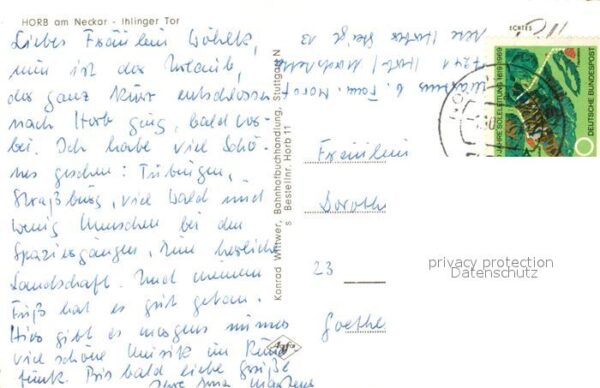 HORB am Neckar - Ihlinger Tor
Liebes Fräulein Wöhlk,
nun ist der Urlaub,
der ganz kurz entschlossen
nach Horb ging, bald vor-
bei. Ich habe viel Schö-
nes gesehen: Tübingen,
Straßburg, viel Wald und
wenig Menschen bei den
Spaziergängen. Eine herrliche
Landschaft. Und meinem
Fuß hat es gut getan.
Hier gibt es morgens immer
viel schöne Musik im Rund
funk. Bis bald liebe Grüße
Ihre
ECHTES
7241 Horb
b. Fam.
Konrad Wittwer, Bahnhofbuchhandlung, Stuttgart N
s Bestellnr. Horb 11
Agfa
JAHRE SOLELEITUNG 1619-1969
DEUTSCHE BUNDESPOST
Fräulein
Dorothe
23
Goethe
privacy protection
Datenschutz